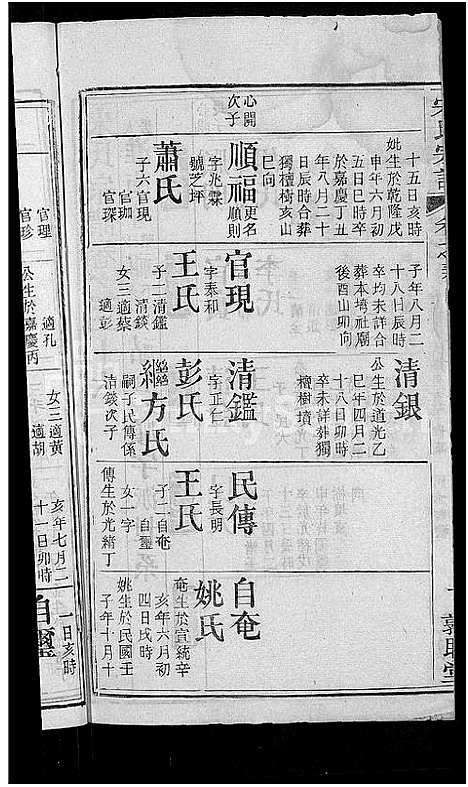 十五日亥時
妣生於乾隆戊
申年六月初
五日巳時卒
於嘉慶丁丑
年八月二十
日辰時合葬
獨檀樹亥山
巳向
心開
次子
順福
更名
順則
字兆霖
號芝坪
蕭氏
子六官現
官珈
官琛
官理
官珍
子年八月二
十八日辰時
卒均未詳合
葬本塆社廟
後酉山卯向
官現
字泰和
王氏
子二清鑑
清錟
女三適蔡
適彭
適孔
公生於嘉慶丙
清銀
公生於道光乙
巳年四月二
十八日卯時
卒未詳葬獨
檀樹墳
清鑑
字正仁
彭氏
繼方氏
嗣子民傳係
清錟次子
女三適黃
適胡
民傳
字長明
王氏
子二自奄
自璽
女一字
傳生於光緒丁
亥年七月二
十一日卯時
自奄
姚氏
奄生於宣統辛
亥年六月初
四日戌時
姚生於民國壬
子年十月十
一日亥時
自璽